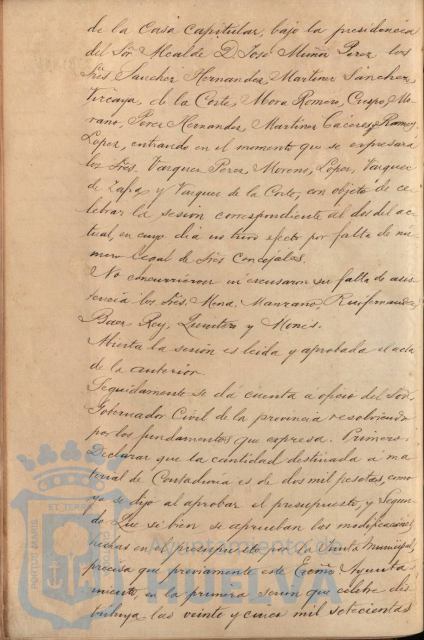 de la Casa Capitular, bajo la presidencia
del Sor. Alcalde D. Jose Muñoz Perez los
Sres Sanchez Hernandez, Martinez Sanchez,
Vizcaya, de la Corte, Mora Romero, Crespo, Mo-
rano, Perez Hernandez, Martinez Caceres, Ramos
Lopez, entrando en el momento que se expresará
los Sres. Vazquez Perez, Moreno, Lopez, Vazquez
de Zafra y Vazquez de la Corte, con objeto de ce-
lebrar la sesion correspondiente al dos del ac-
tual, en cuyo dia no tuvo efecto por falta de nú-
mero legal de Sres Concejales.
No concurrieron ni escusaron su falta de asis-
tencia los Sres. Mena, Manzano, Ruifernandez,
Baez, Rey, Quintero y Mones.
Abierta la sesion es leida y aprobada el acta
de la anterior.
Seguidamente se dá cuenta á oficio del Sor.
Gobernador Civil de la provincia resolviendo
por los fundamentos que expresa. Primero:
Declarar que la cantidad destinada á ma-
terial de Contaduria es de dos mil pesetas, como
ya se dijo al aprobar el presupuesto, y Segun-
do Que si bien se aprueban las modificaciones
hechas en el presupuesto por la Junta Municipal,
precisa que previamente este Excmo Ayunta-
miento, en la primera sesion que celebre dis-
tribuya las veinte y cinco mil setecientas
Ayuntamiento de
HUELVA
PORTUS MARIS ET TERRAE